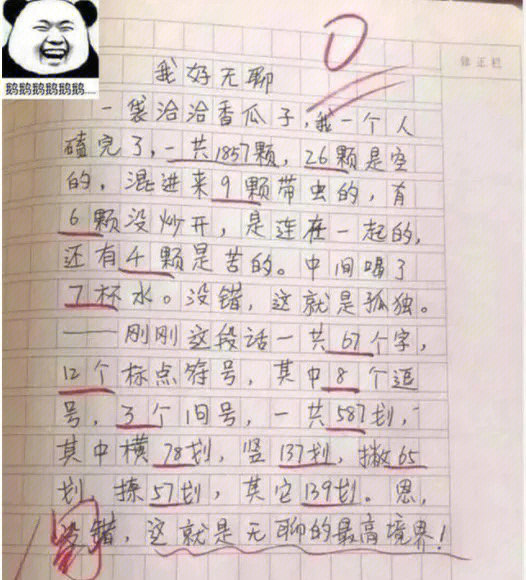 鹅鹅鹅鹅鹅鹅......
0
修正栏
我好无聊
一袋洽洽香瓜子,我一个人
磕完了,一共1857颗,26颗是空
的,混进来9颗带虫的,有
6颗没炒开,是连在一起的,
还有4颗是苦的。中间喝了
7杯水。没错,这就是孤独。
——刚刚这段话一共67个字,
12个标点符号,其中8个逗
号,3个旧号,一共587划,
其中横78划,竖137划,撇65
划,捺57划,其它139划。恩,
没错,这就是无聊的最高境界!